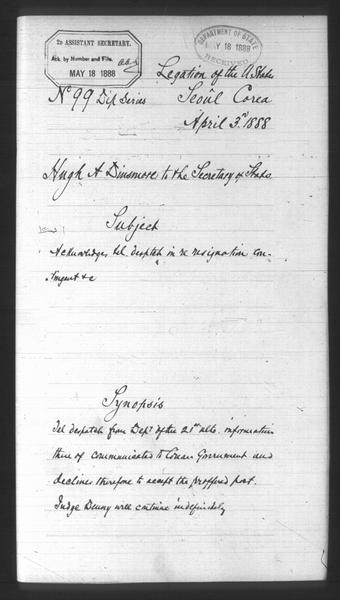 2D ASSISTANT SECRETARY.
Ack. by Number and File.
MAY 18 1888
DEPARTMENT OF STATE
MAY 18 1888
RECEIVED
Legation of the U States
No 99 Dip Series
Seoúl Corea
April 3d 1888
Hugh A Dinsmore to the Secretary of State
Subject
Acknowledges tel. despatch in re resignation con-
tingent &c
Synopsis
Tel despatch from Dept of the 21st ulto. information
there of communicated to Corean Government and
declines therefore to accept the proffered post.
Judge Denny will continue indefinitely